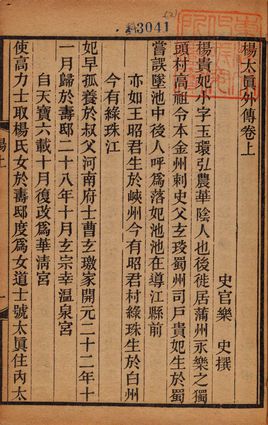 43041
楊太眞外傳卷上
史官樂　史撰
楊貴妃小字玉環弘農華陰人也後徙居蒲州永樂之獨
頭村高祖令本金州刺史父玄琰蜀州司戶貴妃生於蜀
嘗誤墜池中後人呼爲落妃池池在導江縣前
亦如王昭君生於峽州今有昭君村綠珠生於白州
今有綠珠江
妃早孤養於叔父河南府士曹玄璬家開元二十二年十
一月歸於壽邸二十八年十月玄宗幸溫泉宮
自天寶六載十月復改爲華清宮
使高力士取楊氏女於壽邸度爲女道士號太眞住內太
楊上